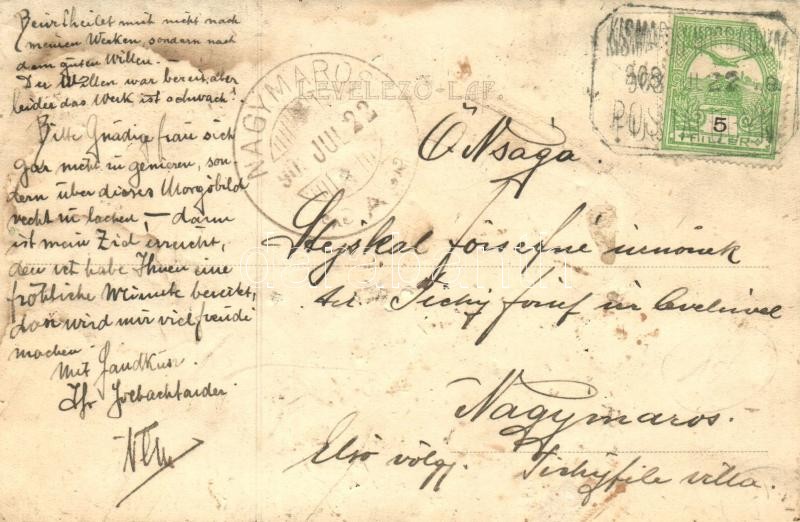 Beurtheilet mich nicht nach
meinen Werken, sondern nach
dem guten Willen.
Der Willen war bereit, aber
leider das Werk ist schwach!
Bitte Gnädige frau sich
gar nicht zu genieren, son-
dern über dieses
recht zu lachen, – dann
ist mein Ziel erreicht,
den ich habe Ihnen eine
fröhliche Minute bereitet,
das wird mir viel freude
machen
Mit Handkuss
Ihr
LEVELEZŐ-LAP.
NAGYMAROS
908 JUL 22
5
FILLÉR
Ő Nsága.
Stejskal úrnőnek
Tichy Josef úr levelével
Nagymaros.
Első völgy. Tichyféle villa.